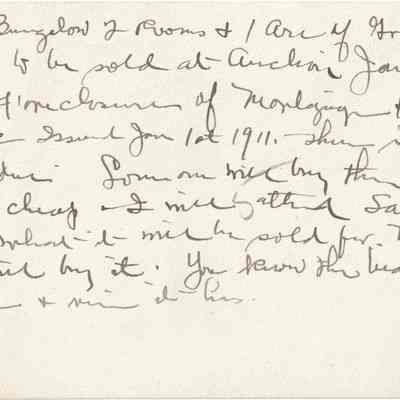 Bungalow 7 Rooms & 1 Acre of Gr
to be sold at Auction Jan
Foreclosure of Mortgage
Issued Jan 1st 1911. There
Someone will buy this
cheap. I will attend Sa
what it will be sold for.
buy it. You know the
& view it has.